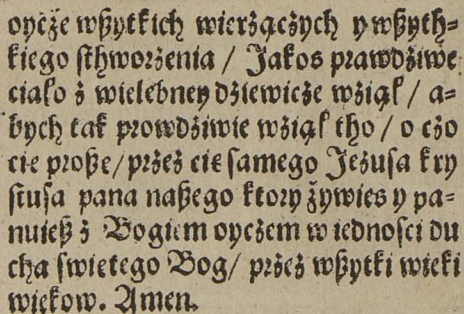 oycże wßytkich wierżącżych y wßyth⸗
kiego sthworżenia / Jakos prawdżiwe
ciało ż wielebney dżiewicże wżiął / a⸗
bych tak prowdżiwie wżiął tho / o cżo
cie proße / prżeż cię samego Jeżusa kry
stusa pana naßego ktory żywies y pa⸗
nuieß ż Bogiem oycżem w iednosci du
cha swietego Bog / prżeż wßytki wieki
wiekow. Amen.